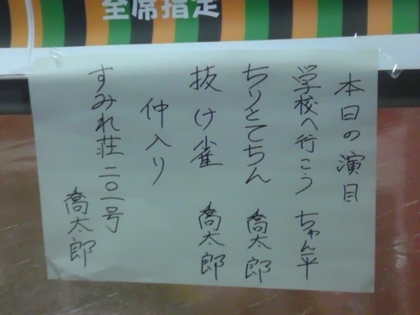 全席指定
本日の演目
学校へ行こう ちゃん平
ちりとてちん 喬太郎
抜け雀 喬太郎
仲入り
すみれ荘二〇一号 喬太郎